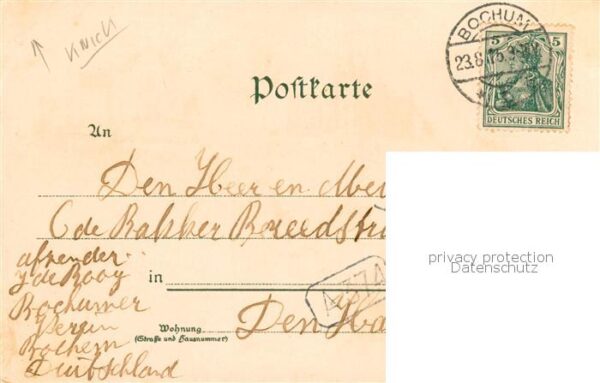 KNICK
BOCHUM
5 5
23.8.
DEUTSCHES REICH
Postkarte
An
Den Heer en
C de Bakker
privacy protection
Datenschutz
afzender
J de Rooy
in
Bochumer
Verein
Wohnung
(Straße und Hausnummer)
Den Haa
Bochem
Duitschland